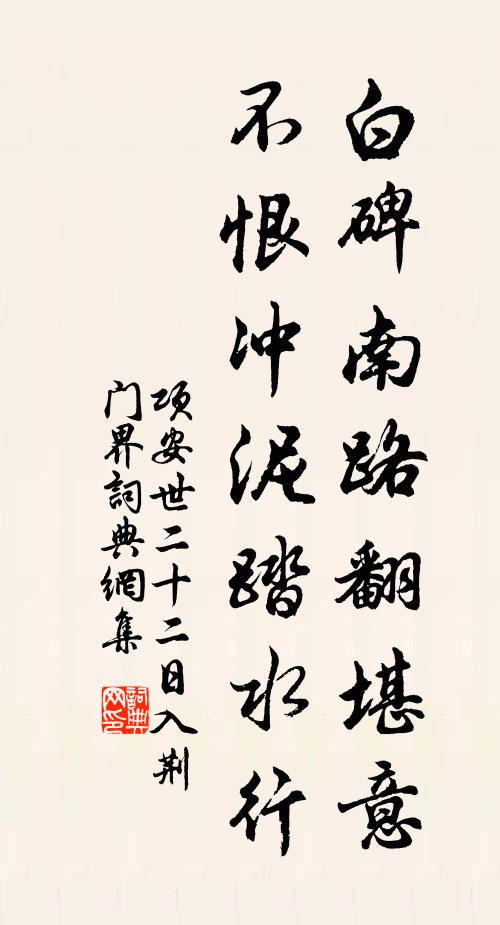 白碑南路翻堪意
不恨冲泥踏水行
项安世二十二日入荆
门界詞典網集
詞典
网印